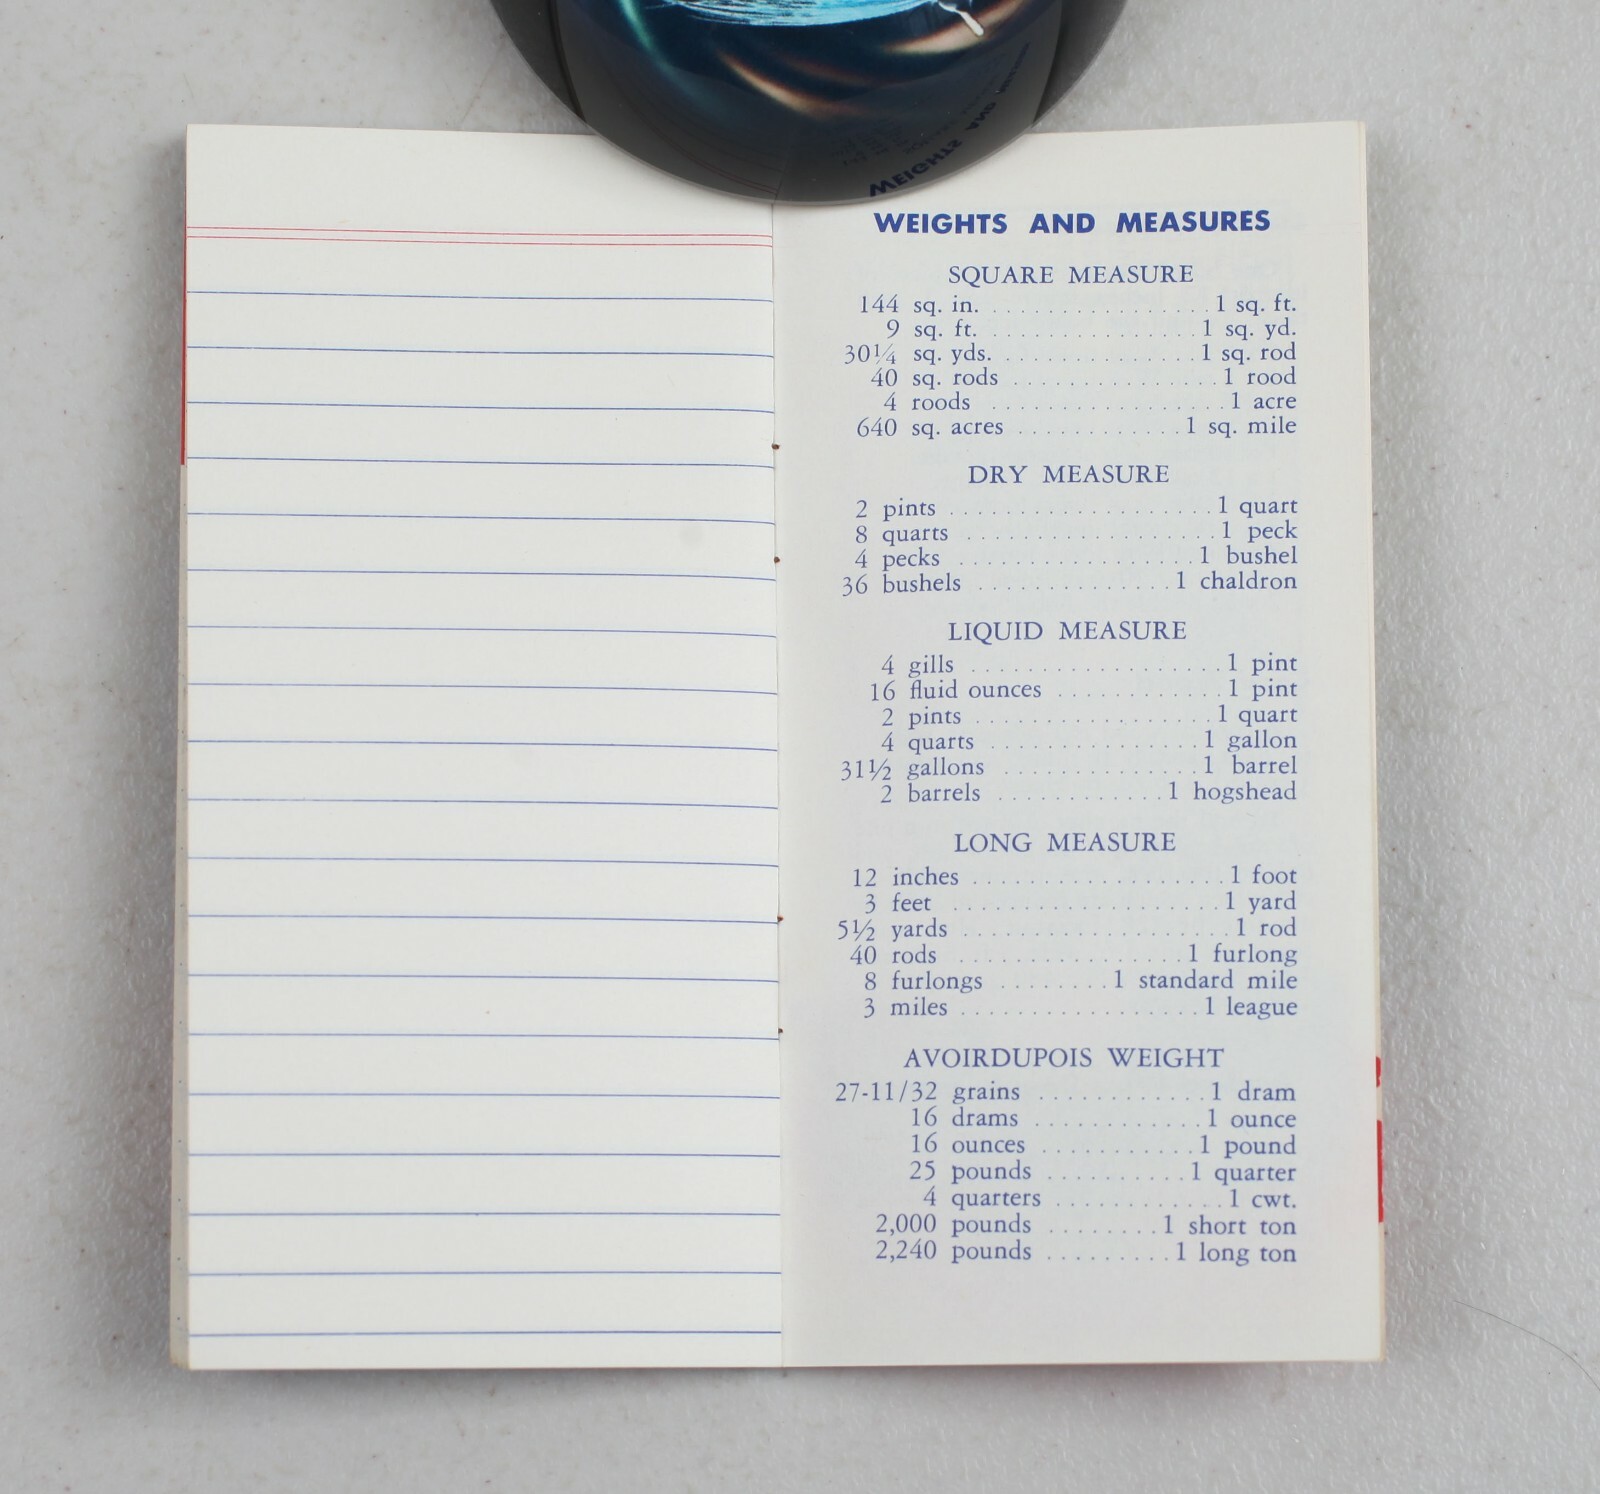 WEIGHTS AND MEASURES
SQUARE MEASURE
144 sq. in. . . . . . . . . . . . . . . . . 1 sq. ft.
9 sq. ft. . . . . . . . . . . . . . . . . 1 sq. yd.
30¼ sq. yds. . . . . . . . . . . . . . . 1 sq. rod
40 sq. rods . . . . . . . . . . . . . . . 1 rood
4 roods . . . . . . . . . . . . . . . . . 1 acre
640 sq. acres . . . . . . . . . . . . 1 sq. mile
DRY MEASURE
2 pints . . . . . . . . . . . . . . . . . . . 1 quart
8 quarts . . . . . . . . . . . . . . . . . . 1 peck
4 pecks . . . . . . . . . . . . . . . . . 1 bushel
36 bushels . . . . . . . . . . . . . . 1 chaldron
LIQUID MEASURE
4 gills . . . . . . . . . . . . . . . . . . 1 pint
16 fluid ounces . . . . . . . . . . . . 1 pint
2 pints . . . . . . . . . . . . . . . . . 1 quart
4 quarts . . . . . . . . . . . . . . . 1 gallon
31½ gallons . . . . . . . . . . . . . . 1 barrel
2 barrels . . . . . . . . . . . . 1 hogshead
LONG MEASURE
12 inches . . . . . . . . . . . . . . . . . . 1 foot
3 feet . . . . . . . . . . . . . . . . . . . 1 yard
5½ yards . . . . . . . . . . . . . . . . . . . 1 rod
40 rods . . . . . . . . . . . . . . . . 1 furlong
8 furlongs . . . . . . . . 1 standard mile
3 miles . . . . . . . . . . . . . . . . . 1 league
AVOIRDUPOIS WEIGHT
27-11/32 grains . . . . . . . . . . . . 1 dram
16 drams . . . . . . . . . . . . 1 ounce
16 ounces . . . . . . . . . . . 1 pound
25 pounds . . . . . . . . . . 1 quarter
4 quarters . . . . . . . . . . . . 1 cwt.
2,000 pounds . . . . . . . . 1 short ton
2,240 pounds . . . . . . . . . 1 long ton